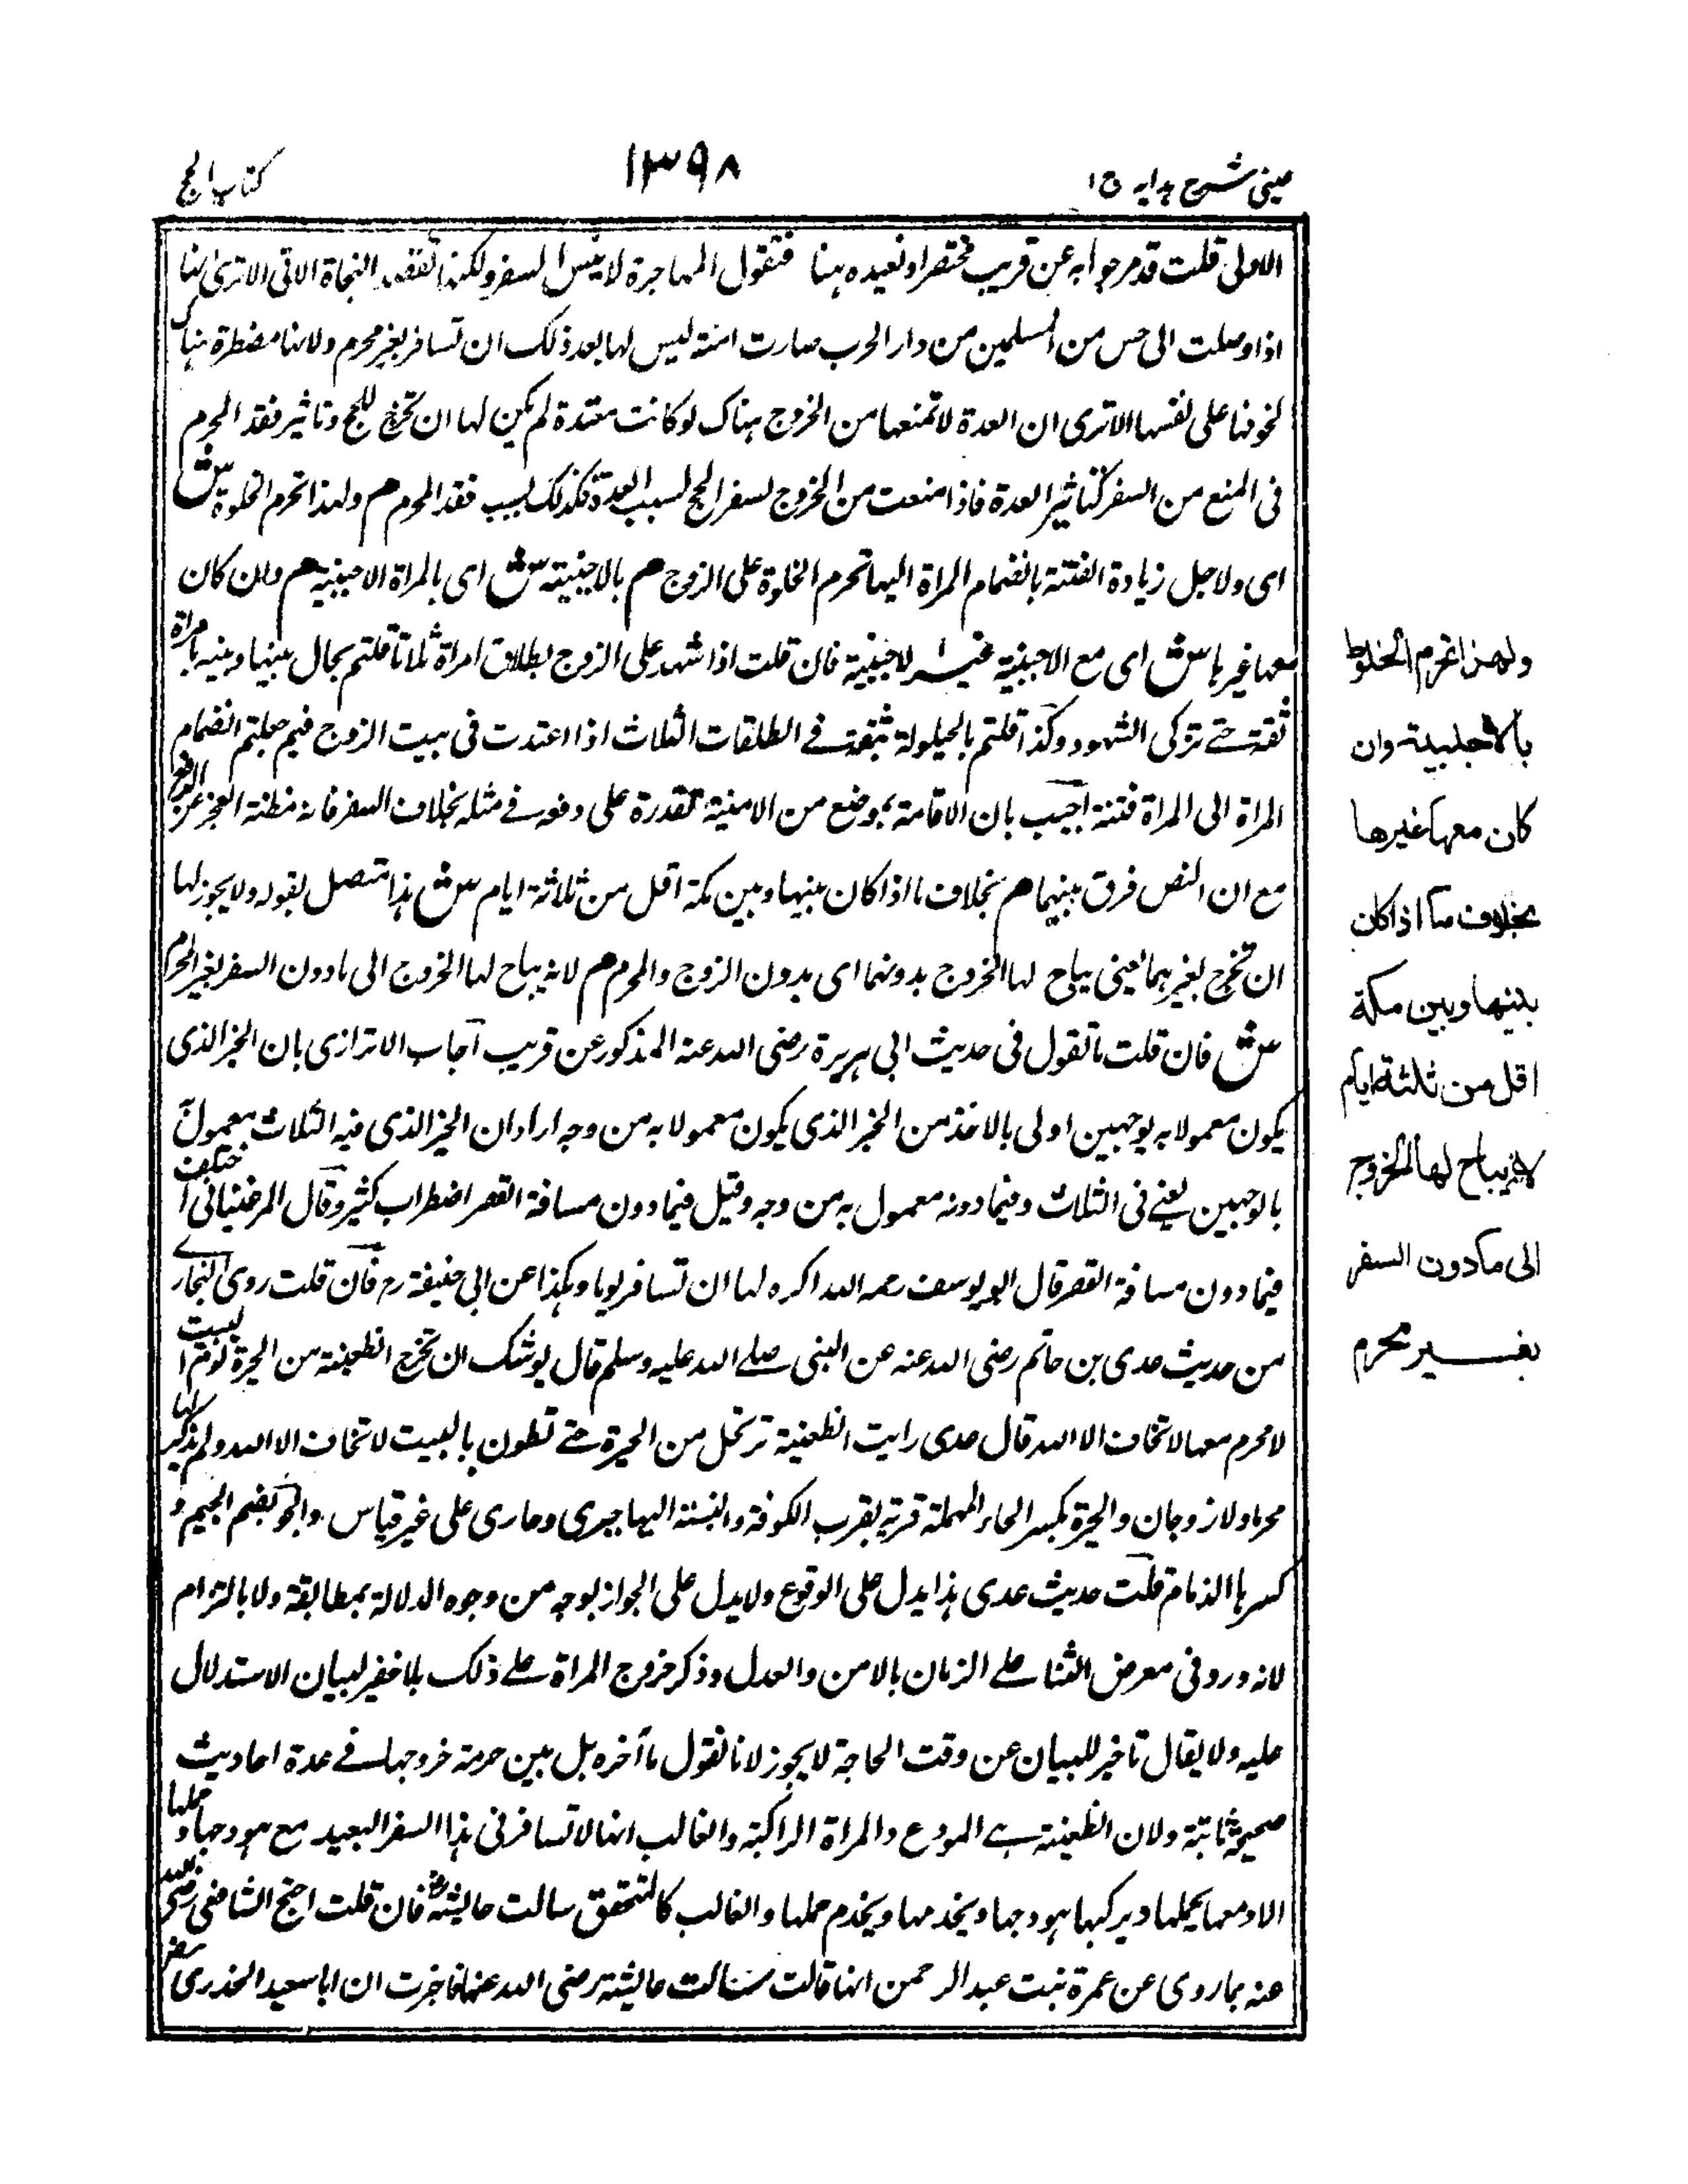 عینی شرح ہدایہ ج ۱
۱۳۹۸
کتاب الحج
الاولی قلت قد مر جوابہ عن قریب مختصرا ونعیدہ ہنا فنقول المہاجرة لا تنشئ السفر ولکنہا تقصد النجاة الا تری انہا
اذا وصلت الی جیش من المسلمین من دار الحرب صارت امنة لیس لہا بعد ذلک ان تسافر بغیر محرم ولانہا مضطرة ہناک
لخوفہا علی نفسہا الا تری ان العدة لا تمنعہا من الخروج ہناک لو کانت معتدة لم یکن لہا ان تخرج للحج وتاثیر فقد المحرم
فی المنع من السفر کتاثیر العدة فاذا منعت من الخروج لسفر الحج لسبب العدة فکذلک بسبب فقد المحرم م ولہذا تحرم الخلوة ش
ای ولاجل زیادة الفتنة بانضمام المراة الیہا تحرم الخلوة علی الزوج م بالاجنبیة ش ای بالمراة الاجنبیة م وان کان
معہا غیرہا ش ای مع الاجنبیة غیر الاجنبیة فان قلت اذا شہد علی الزوج بطلاق امراة ثلاثا قلتم یحال بینہا وبینہ بامراة
ثقة حتے تزکی الشہود وکذا قلتم بالحیلولة بثقة فے الطلقات الثلاث اذا اعتدت فی بیت الزوج فیم جعلتم انضمام
المراة الی المراة فتنة اجیب بان الاقامة بموضع من الامنیة مقدرة علی دفعہ فے مثلہ بخلاف السفر فانہ مظنة العجز عن الدفع
مع ان النص فرق بینہما م بخلاف ما اذا کان بینہا وبین مکة اقل من ثلاثة ایام ش ہذا متصل بقولہ ولا یجوز لہا
ان تخرج بغیرہما یعنی یباح لہا الخروج بدونہما ای بدون الزوج والمحرم م لانہ یباح لہا الخروج الی مادون السفر بغیر المحرم
ش فان قلت ما تقول فی حدیث ابی ہریرة رضی اللہ عنہ المذکور عن قریب اجاب الاترازی بان الخبر الذی
یکون معمولا بہ بوجہین اولی بالاخذ من الخبر الذی یکون معمولا بہ من وجہ اراد ان الخبر الذی فیہ الثلاث معمول
بالوجہین یعنے فی الثلاث وفیما دونہ معمول بہ من وجہ وقیل فیما دون مسافة القصر اضطراب کثیر وقال المرغینانی اختلف
فیما دون مسافة القصر قال ابو یوسف رحمہ اللہ اکرہ لہا ان تسافر یوما وہکذا عن ابی حنیفة رح فان قلت روی البخارے
من حدیث عدی بن حاتم رضی اللہ عنہ عن النبی صلے اللہ علیہ وسلم قال یوشک ان تخرج الظعینة من الحیرة تؤم البیت
لا محرم معہا لا تخاف الا اللہ قال عدی رایت الظعینة ترتحل من الحیرة حتے تطوف بالبیت لا تخاف الا اللہ ولم یذکر لہا
محرما ولا زوجا ن والحیرة بکسر الحاء المہملة قریة بقرب الکوفة والنسبة الیہا حیری وحاری علی غیر قیاس والجوار بضم الجیم و
کسرہا الذمام قلت حدیث عدی ہذا یدل علی الوقوع ولا یدل علی الجواز بوجہ من وجوہ الدلالة بمطابقة ولا بالتزام
لانہ ورد فی معرض الثنا علے الزمان بالامن والعدل وذکر خروج المراة علے ذلک بلا خفیر لبیان الاستدلال
علیہ ولا یقال تاخیر للبیان عن وقت الحاجة لا یجوز لانا نقول ما اخرہ بل بین حرمة خروجہا فے عدة احادیث
صحیحة ثابتة ولان الظعینة ہے الہودج والمراة الراکبة والغالب انہا لا تسافر فی ہذا السفر البعید مع ہودجہا وحملہا
الا ومعہا یحملہا ویرکبہا ہودجہا ویخدمہا ویخدم حملہا والغالب کالمتحقق سالت عایشة فان قلت احتج الشافعی رضی اللہ
عنہ بما روی عن عمرة بنت عبد الرحمن انہا قالت سالت عایشة رضی اللہ عنہا فاخبرت ان ابا سعید الخدری رض
ولهذا تحرم الخلوة
بالاجنبية وان
كان معها غيرها
بخلاف ما اذا كان
بينها وبين مكة
اقل من ثلثة ايام
لانه يباح لها الخروج
الى ما دون السفر
بغير محرم